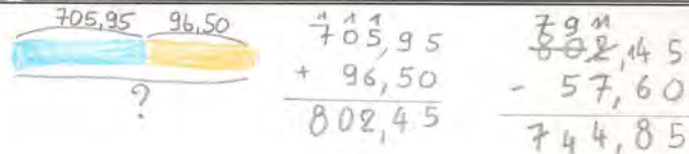 705,95 96,50
?
1 1 1
705,95
+ 96,50
802,45
7 9 11
802,145
- 57,60
744,85